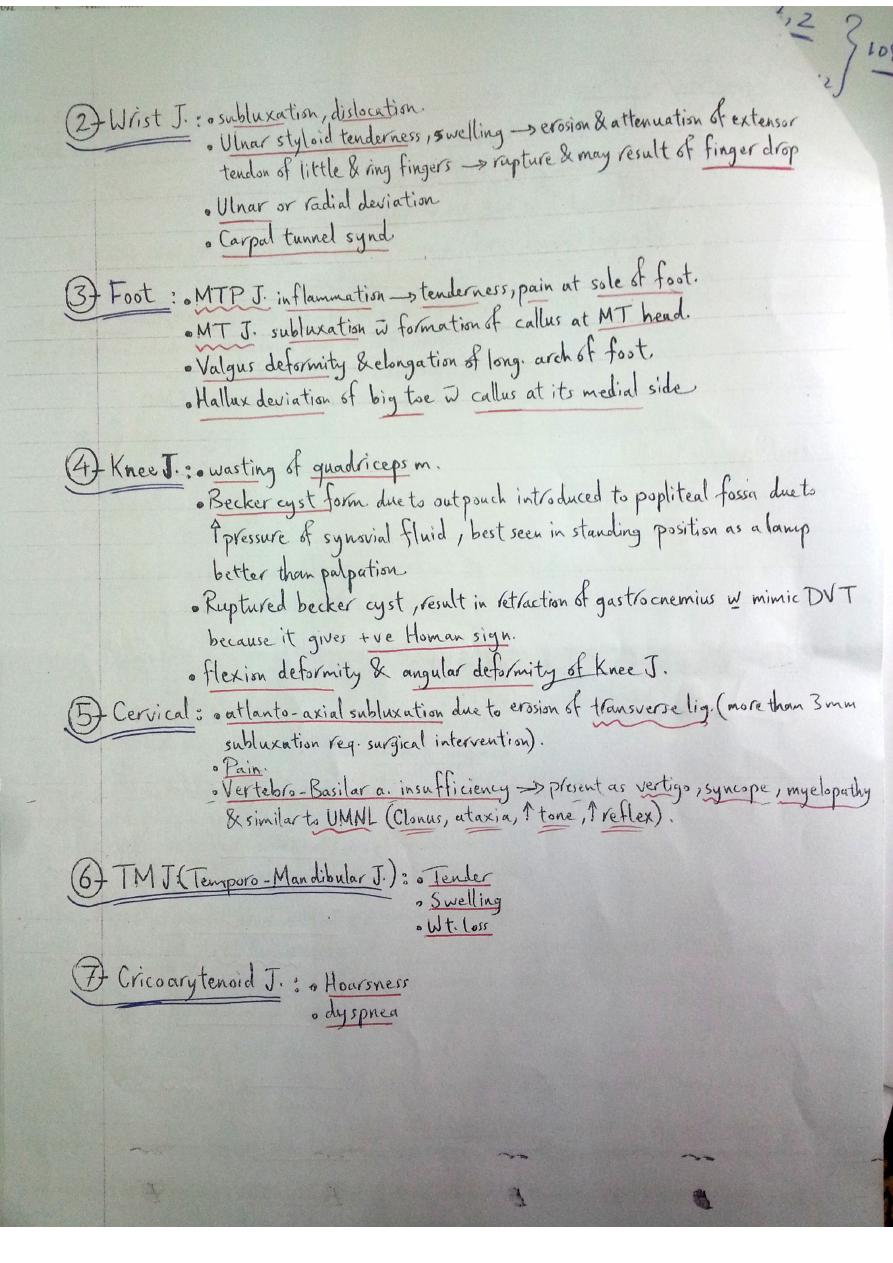 ,2
2 } los
②- Wrist J. : • subluxation, dislocation.
• Ulnar styloid tenderness, swelling → erosion & attenuation of extensor
tendon of little & ring fingers → rupture & may result of finger drop
• Ulnar or radial deviation
• Carpal tunnel synd
③- Foot : • MTP J. inflammation → tenderness, pain at sole of foot.
• MT J. subluxation w̄ formation of callus at MT head.
• Valgus deformity & elongation of long. arch of foot.
• Hallux deviation of big toe w̄ callus at its medial side
④- Knee J. : • wasting of quadriceps m.
• Becker cyst form due to outpouch introduced to popliteal fossa due to
↑ pressure of synovial fluid, best seen in standing position as a lamp
better than palpation
• Ruptured becker cyst, result in retraction of gastrocnemius w mimic DVT
because it gives +ve Homan sign.
• flexion deformity & angular deformity of Knee J.
⑤- Cervical : • atlanto-axial subluxation due to erosion of transverse lig. (more than 3mm
subluxation req. surgical intervention).
• Pain.
• Vertebro-Basilar a. insufficiency → present as vertigo, syncope, myelopathy
& similar to UMNL (Clonus, ataxia, ↑ tone, ↑ reflex).
⑥- TMJ (Temporo-Mandibular J.) : • Tender
• Swelling
• Wt. loss
⑦- Cricoarytenoid J. : • Hoarsness
• dyspnea